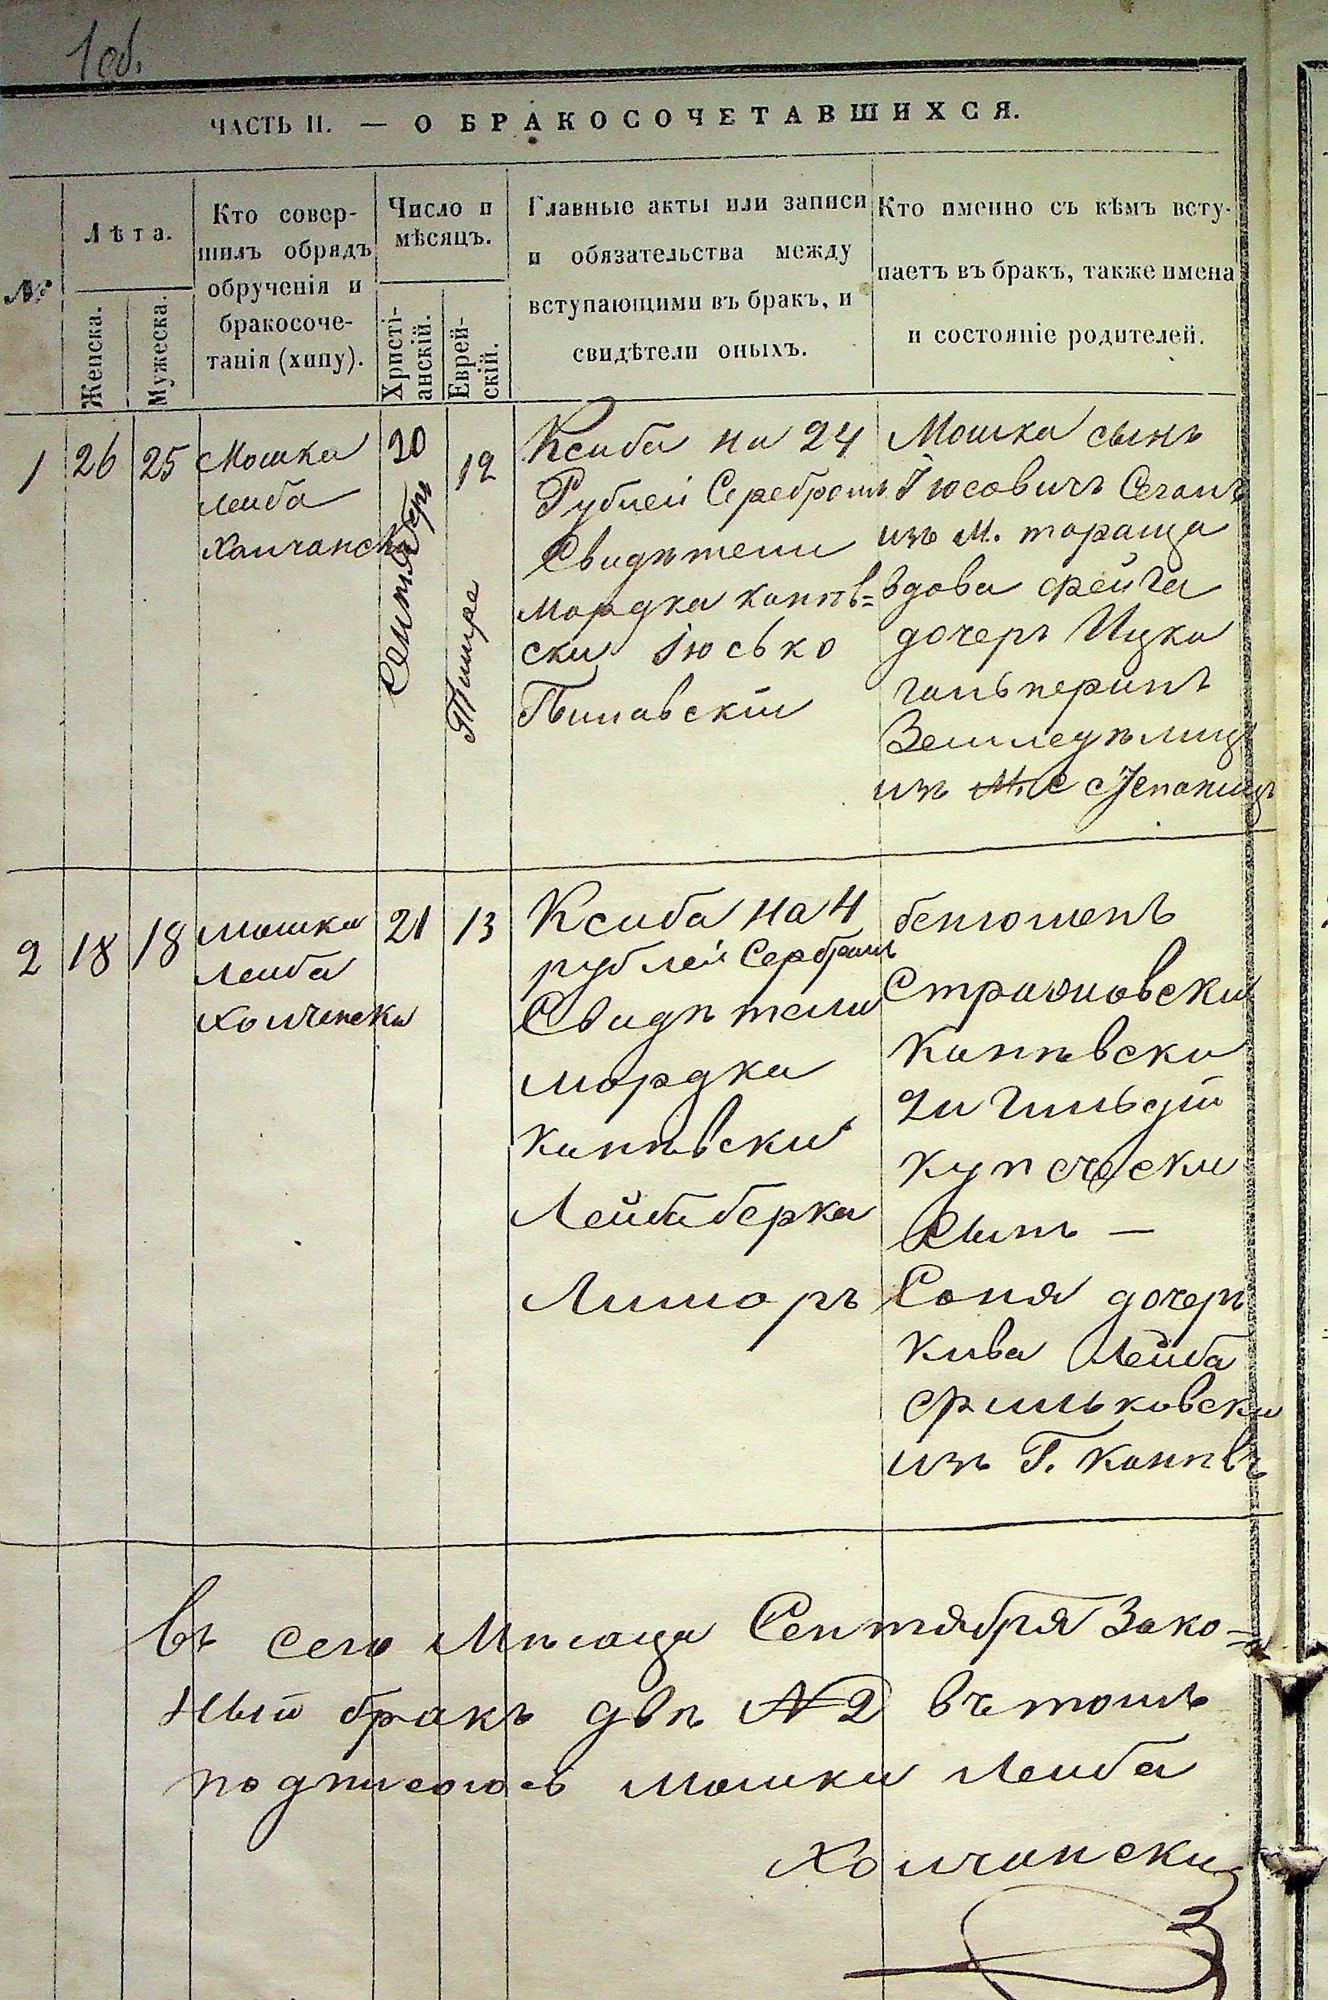 1 об.
ЧАСТЬ II. — О БРАКОСОЧЕТАВШИХСЯ.
№
Лѣта.
Женска.
Мужеска.
Кто совер-
шилъ обрядъ
обрученія и
бракосоче-
танія (хипу).
Число и
мѣсяцъ.
Христі-
анскій.
Еврей-
скій.
Главные акты или записи
и обязательства между
вступающими въ бракъ, и
свидѣтели оныхъ.
Кто именно съ кѣмъ всту-
паетъ въ бракъ, также имена
и состояніе родителей.
1
26
25
Мошка
Леиба
Холчански
20
Сентябрь
12
Тишре
Ксиба на 24
Рублей Серебромъ
Свидѣтели
Мордка Канѣв=
ски Іюсько
Мошка сынъ
Іюсовичъ
изъ М. тараща
вдова фейга
дочеръ Ицка
галъперинъ
из
2
18
18
мошка
Леиба
Холчански
21
13
Ксиба на 4
рублей Сербромъ
Свидѣтели
мордка
Канѣвски
Лейбберка
бенюменъ
Канѣвски
2и Гильдіи
купчески
Сынъ —
Соня дочеръ
Кива Лейба
фильковски
изъ Г. Канѣвъ
въ сего Мѣсаца Сентября Зако-
ный бракъ двѣ № 2 въ томъ
подписоюсь мошка Леиба
Холчански